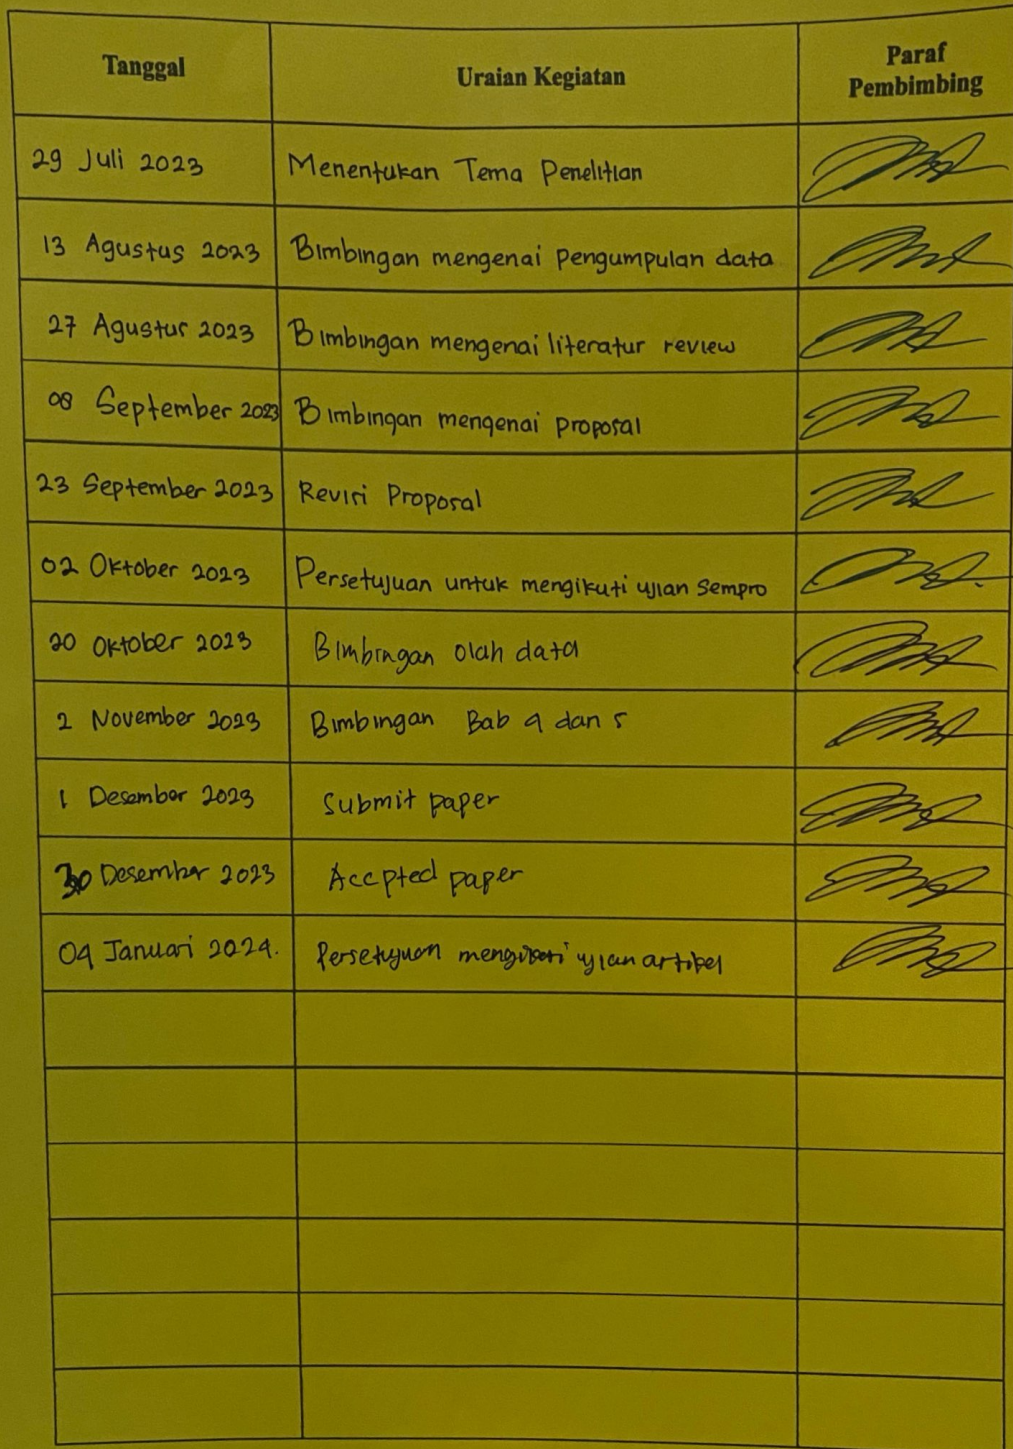 Tanggal
Uraian Kegiatan
Paraf
Pembimbing
29 Juli 2023
Menentukan Tema Penelitian
13 Agustus 2023
Bimbingan mengenai pengumpulan data
27 Agustus 2023
Bimbingan mengenai literatur review
08 September 2023
Bimbingan mengenai proposal
23 September 2023
Revisi Proposal
02 Oktober 2023
Persetujuan untuk mengikuti ujian Sempro
20 Oktober 2023
Bimbingan olah data
2 November 2023
Bimbingan Bab 4 dan 5
1 Desember 2023
Submit paper
30 Desember 2023
Accpted paper
04 Januari 2024.
Persetujuan mengikuti ujian artikel